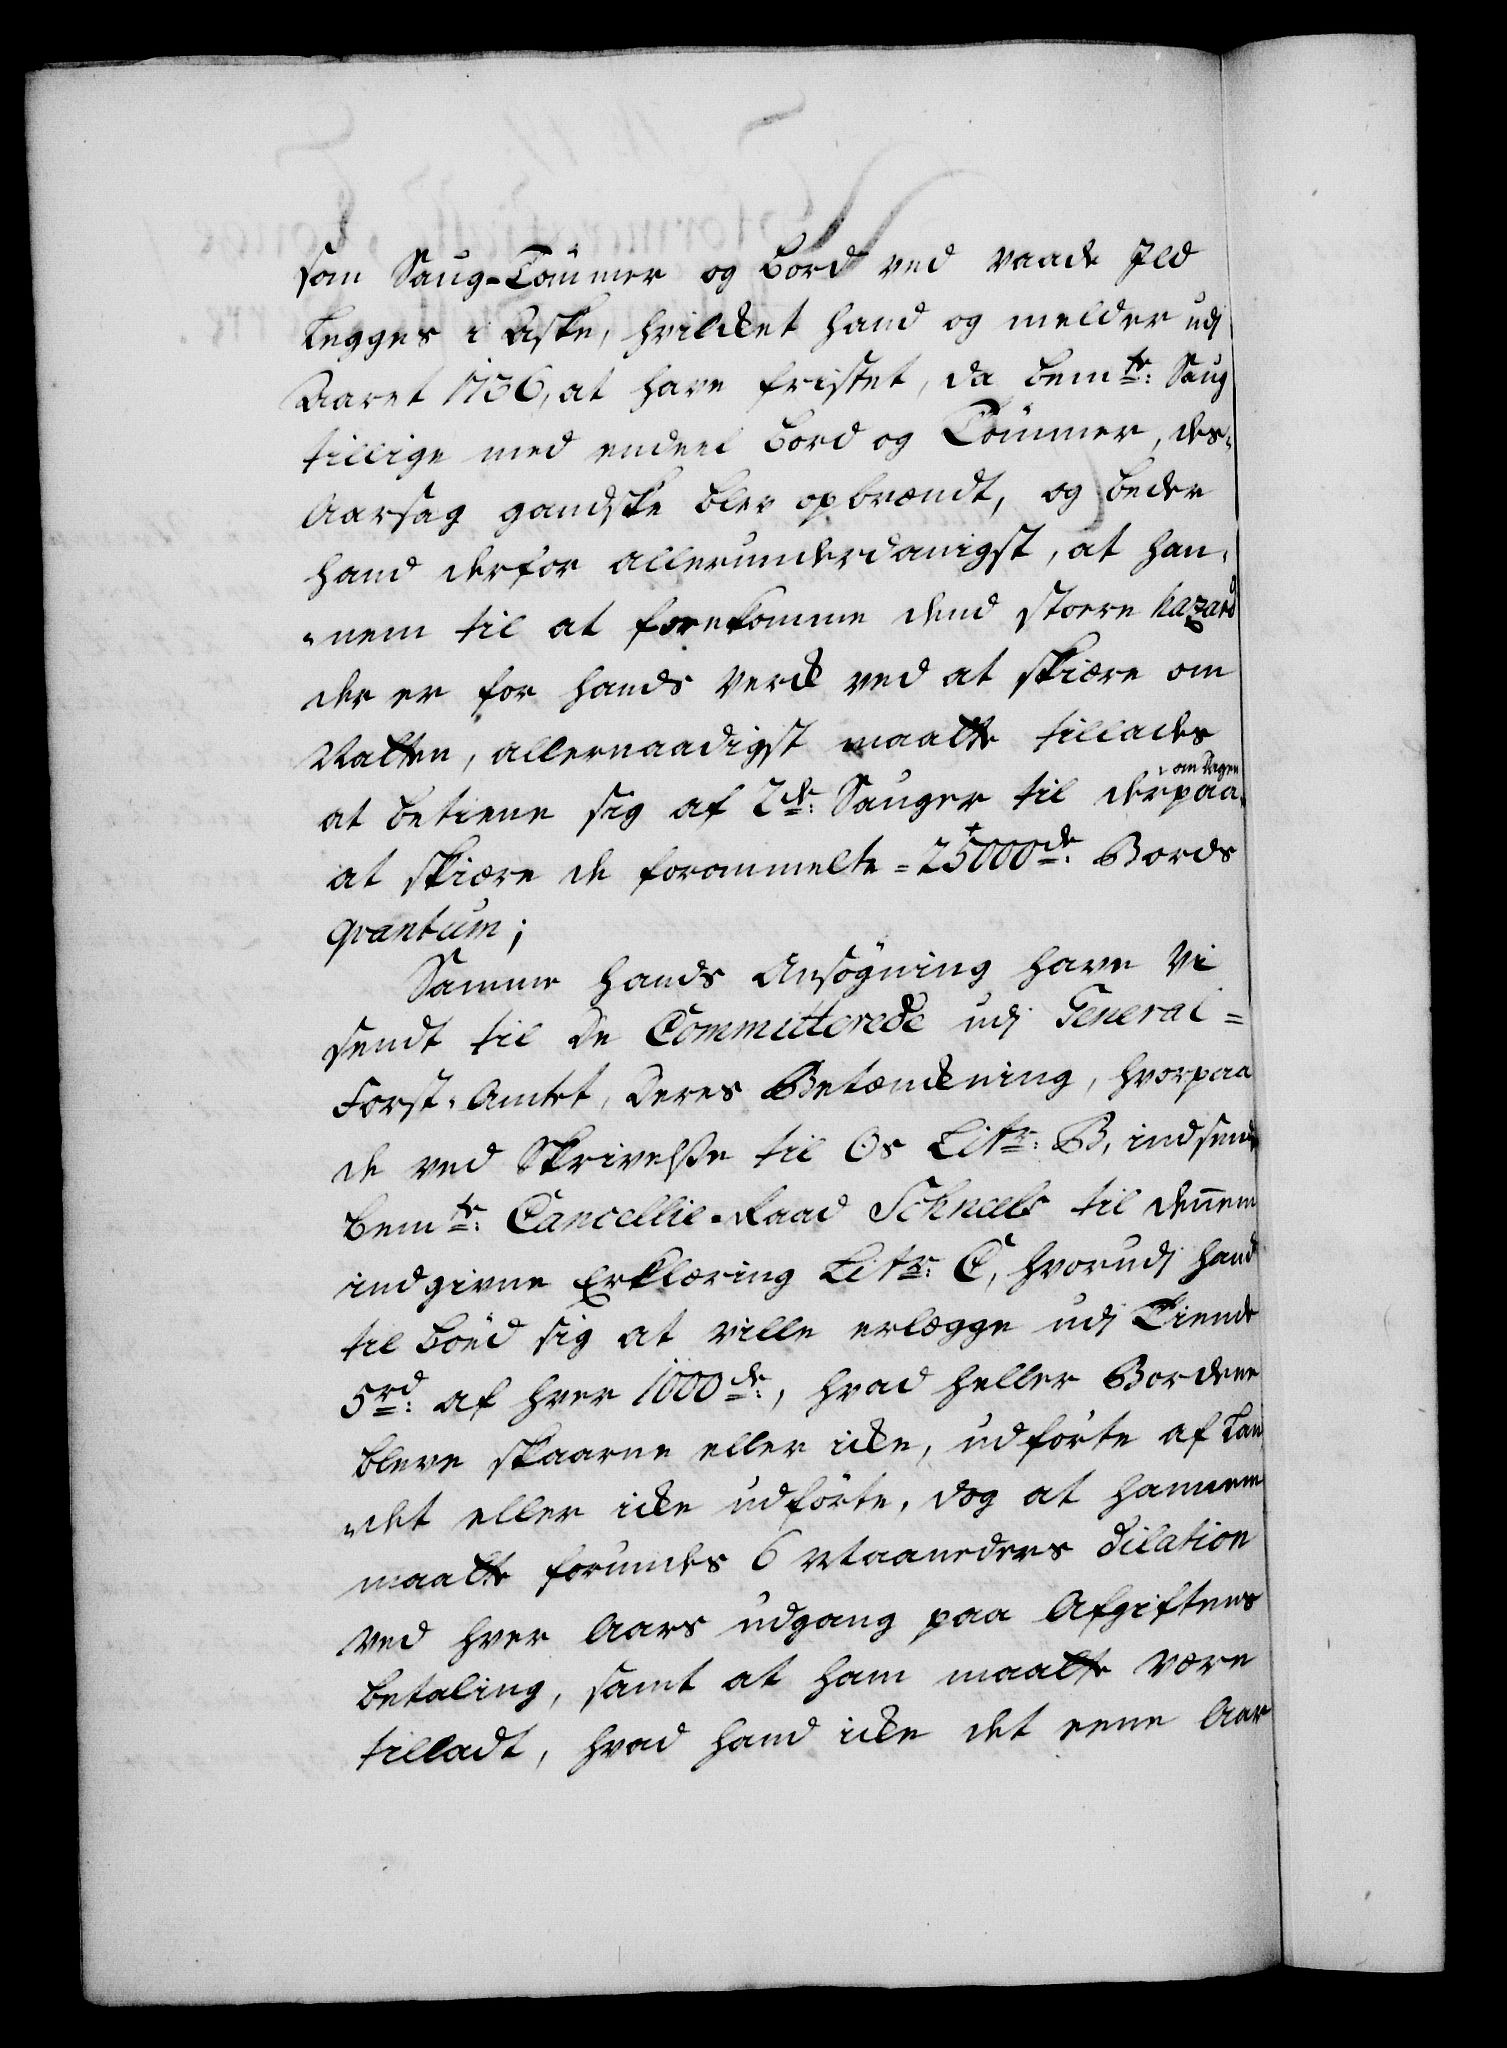 som Saug-Tømmer og Bord ved vaade Ild
legges i Aske, hvilcket hand og melder udj
Aaret 1736, at have fristet, da bemte: Saug
tillige med endeel Bord og Tømmer, des-
Aarsag gandske blev opbrændt, og beder
hand derfor allerunderdanigst, at han-
nem til at forekomme dend storre hazard
der er for hands Verck ved at skiære om
Natten, allernaadigst maatte tillades
at betiene sig af 2de: Sauger til om dagen derpaa
at skiære de forommelte 25000de: Bords
qvantum;
Samme hands Ansøgning have Vi
sendt til De Committerede udj General=
Forst-Amtet, Deres Betænckning, hvorpaa
de ved Skrivelse til Os Litr: B, indsende
bemte: Cancellie-Raad Schneels til dennem
indgivne Erklæring Litr: C, hvorudj hand
til bøed sig at ville erlægge udj Tiende
5rd: af hver 1000de:, hvad heller Bordene
bleve skaarne eller icke, udførte af Lan
det eller icke udførte, dog at hannem
maatte forundes 6 Maaneders dilation
ved hver Aars udgang paa Afgiftens
betaling, samt at ham maatte være
tilladt, hvad hand icke det eene Aar